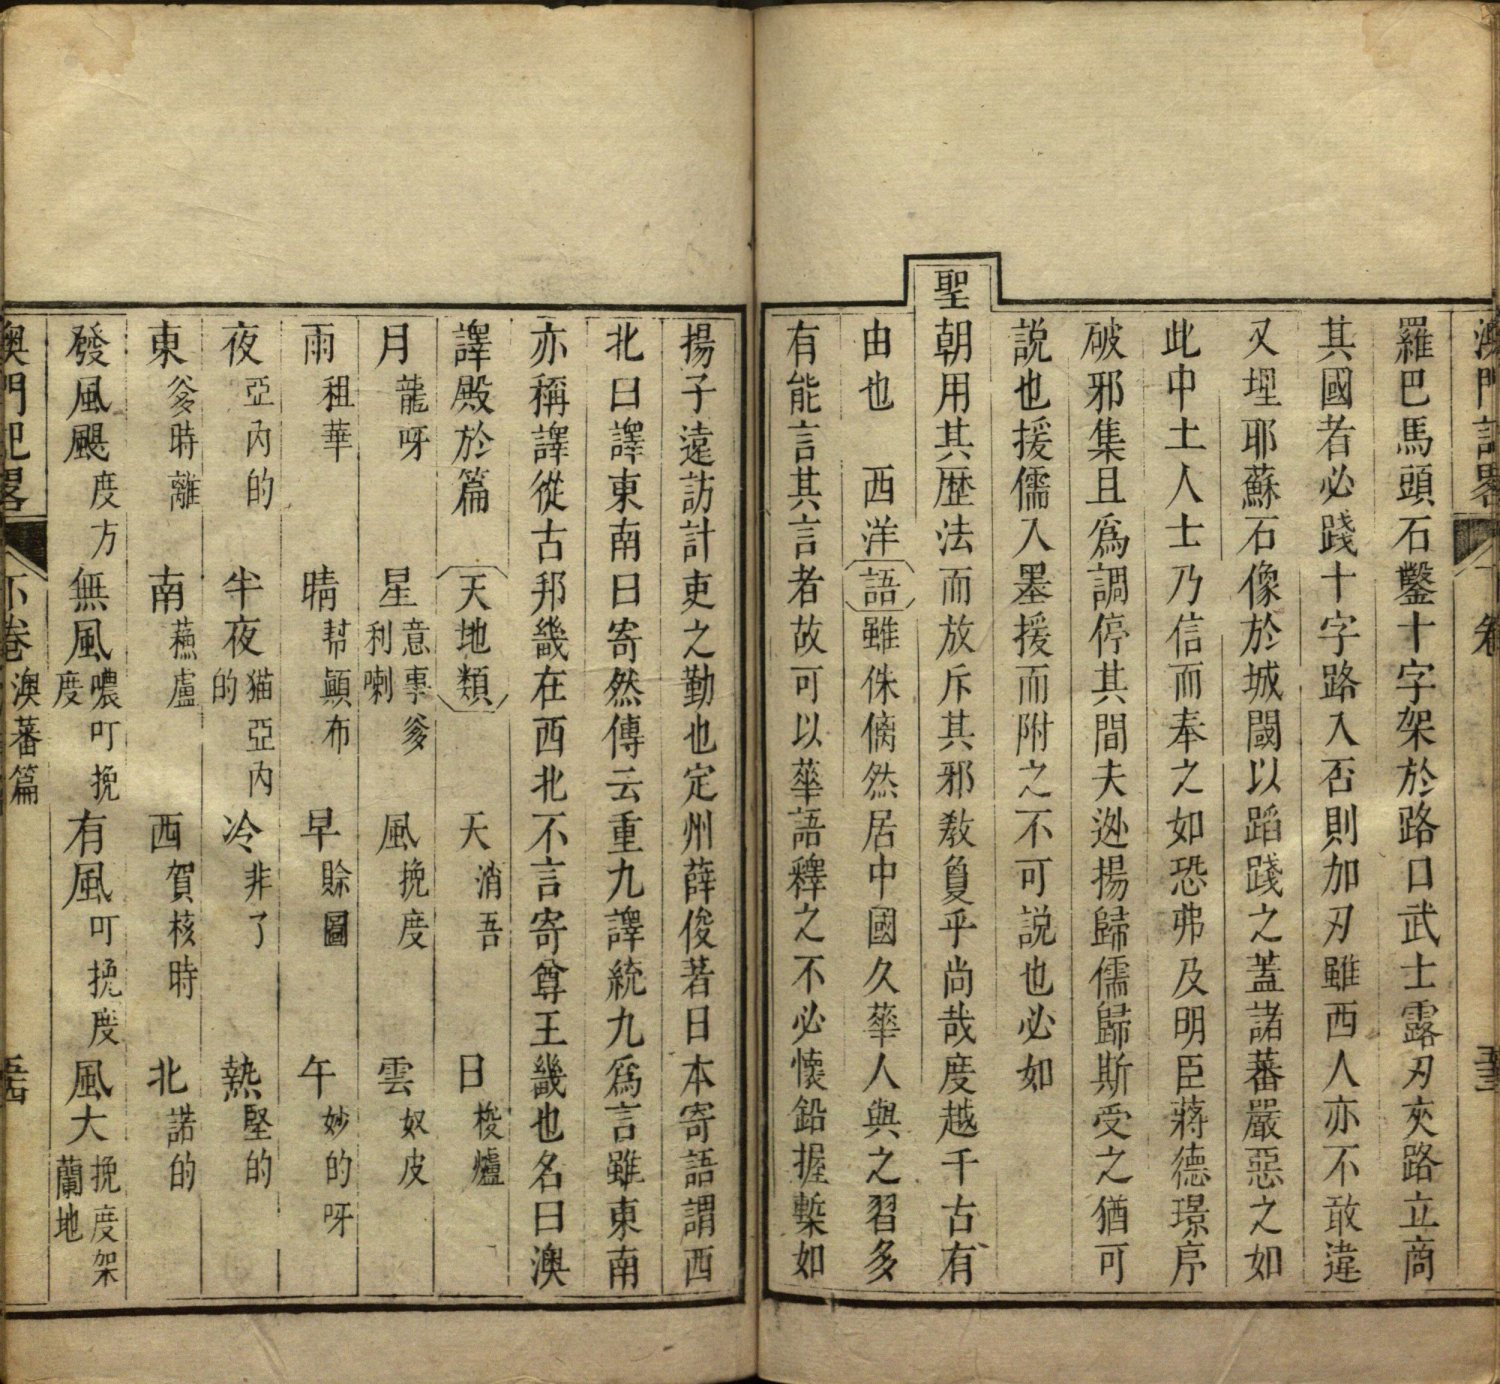 澳門記畧 下卷 五十三
羅巴馬頭石鑿十字架於路口武士露刃夾路立商
其國者必踐十字路入否則加刃雖西人亦不敢違
又埋耶蘇石像於城閾以蹈踐之蓋諸蕃嚴惡之如
此中土人士乃信而奉之如恐弗及明臣蔣德璟序
破邪集且爲調停其間夫逃揚歸儒歸斯受之猶可
説也援儒入墨援而附之不可説也必如
聖朝用其歴法而放斥其邪教敻乎尚哉度越千古有
由也 西洋語雖侏𠌯然居中國久華人與之習多
有能言其言者故可以華語釋之不必懷鉛握槧如
揚子遠訪計吏之勤也定州薛俊著日本寄語謂西
北曰譯東南曰寄然傳云重九譯統九爲言雖東南
亦稱譯從古邦畿在西北不言寄尊王畿也名曰澳
譯殿於篇 天地類 天消吾 日梭爐
月龍呀 星意事爹利喇 風挽度 雲奴皮
雨租華 晴幇顚布 早賒圖 午妙的呀
夜亞內的 半夜猫亞內的 冷非了 熱堅的
東爹時離 南蘓盧 西賀核時 北諾的
發風颶度方 無風噥叮挽度 有風叮挽度 風大挽度架蘭地
澳門記畧 下卷 澳蕃篇 五十四